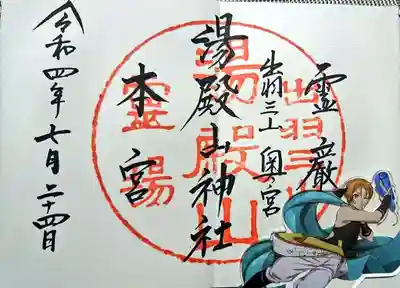 霊巌
出羽三山 奥宮
湯殿山神社
本宮
令和四年七月二十四日
出羽三
湯殿山
霊場